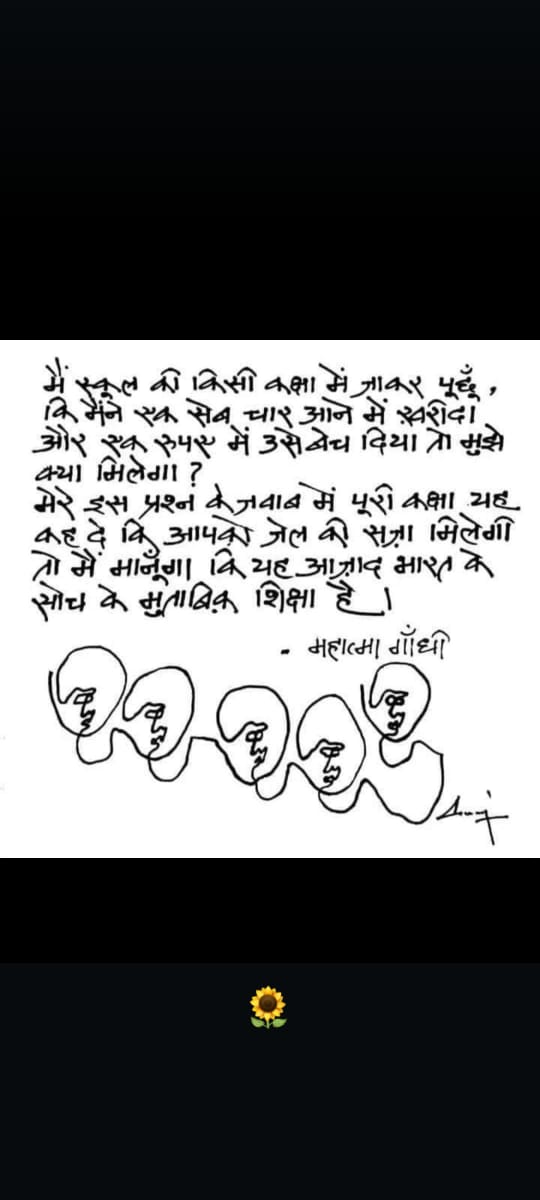 मैं स्कूल की किसी कक्षा में जाकर पूछूँ,
कि मैंने एक सेब चार आने में ख़रीदा
और एक रुपए में उसे बेच दिया तो मुझे
क्या मिलेगा?
मेरे इस प्रश्न के जवाब में पूरी कक्षा यह
कह दे कि आपको जेल की सज़ा मिलेगी
तो मैं मानूँगा कि यह आज़ाद भारत के
सोच के मुताबिक़ शिक्षा है।
- महात्मा गाँधी